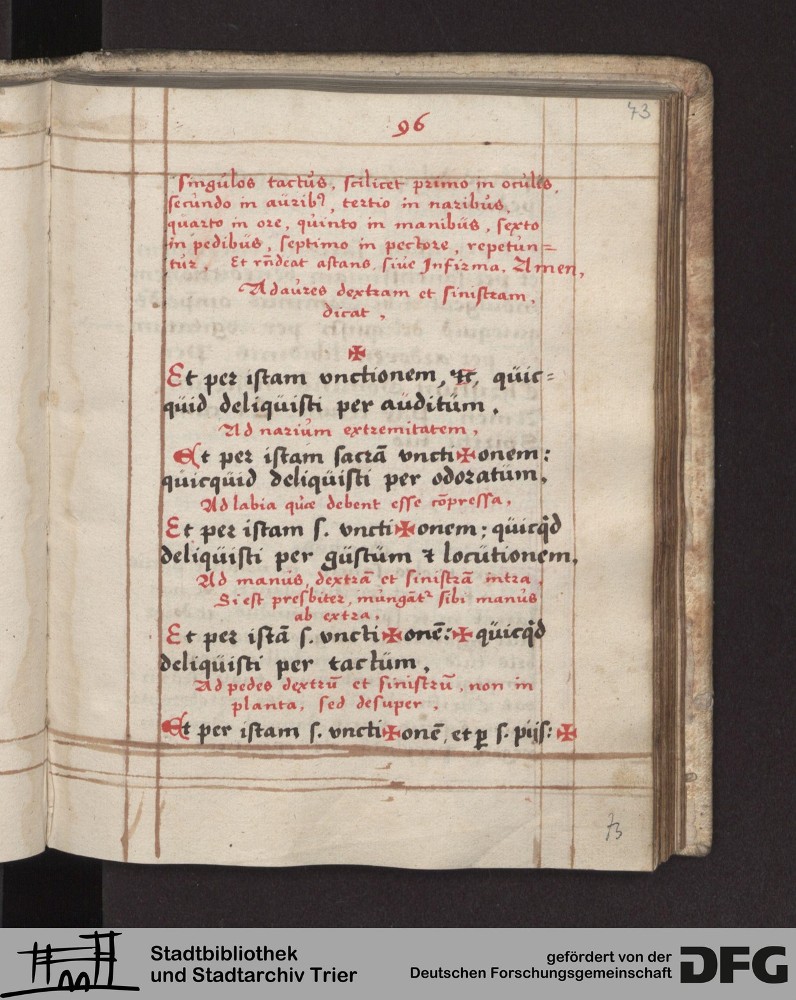 73
96
singulos tactus, scilicet primo in oculis,
secundo in aurib9, tertio in naribus,
quarto in ore, quinto in manibus, sexto
in pedibus, septimo in pectore, repetun=
tur, Et rn̄deat astans, siue Infirma, Amen,
Ad aures dextram et sinistram,
dicat,
✠
Et per istam vnctionem, ⁊c, quic=
quid deliquisti per auditum,
Ad narium extremitatem,
Et per istam sacrā vncti✠onem:
quicquid deliquisti per odoratum,
Ad labia quæ debent esse cōpressa,
Et per istam s. vncti✠onem; quicq̇d
deliquisti per gustum ⁊ locutionem,
Ad manus, dextrā et sinistrā intra,
Si est presbiter, inungāt᷑ sibi manus
ab extra,
Et per istā s. vncti✠onē:✠ quicq̇d
deliquisti per tactum,
Ad pedes dextrū et sinistrū, non in
planta, sed desuper,
Et per istam s. vncti✠onē, et ꝑ s. pijs: ✠
73
Stadtbibliothek
und Stadtarchiv Trier
gefördert von der
Deutschen Forschungsgemeinschaft
DFG